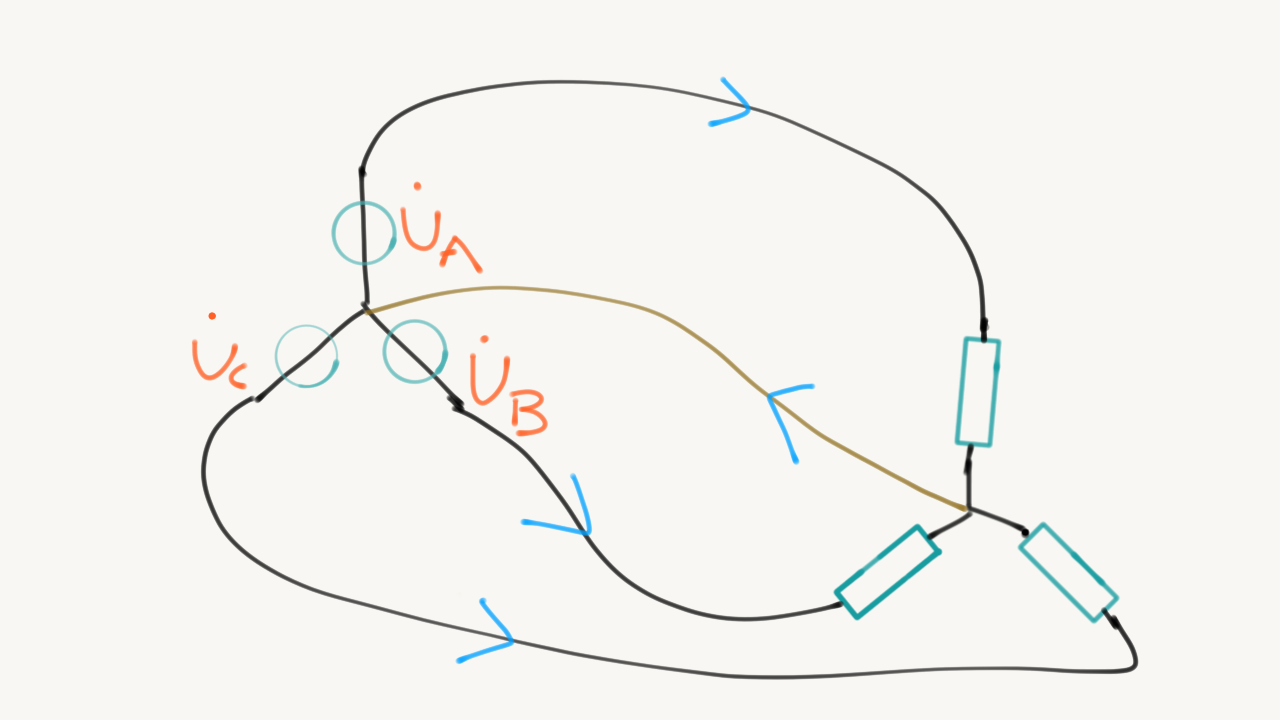 U̇A
U̇C
U̇B